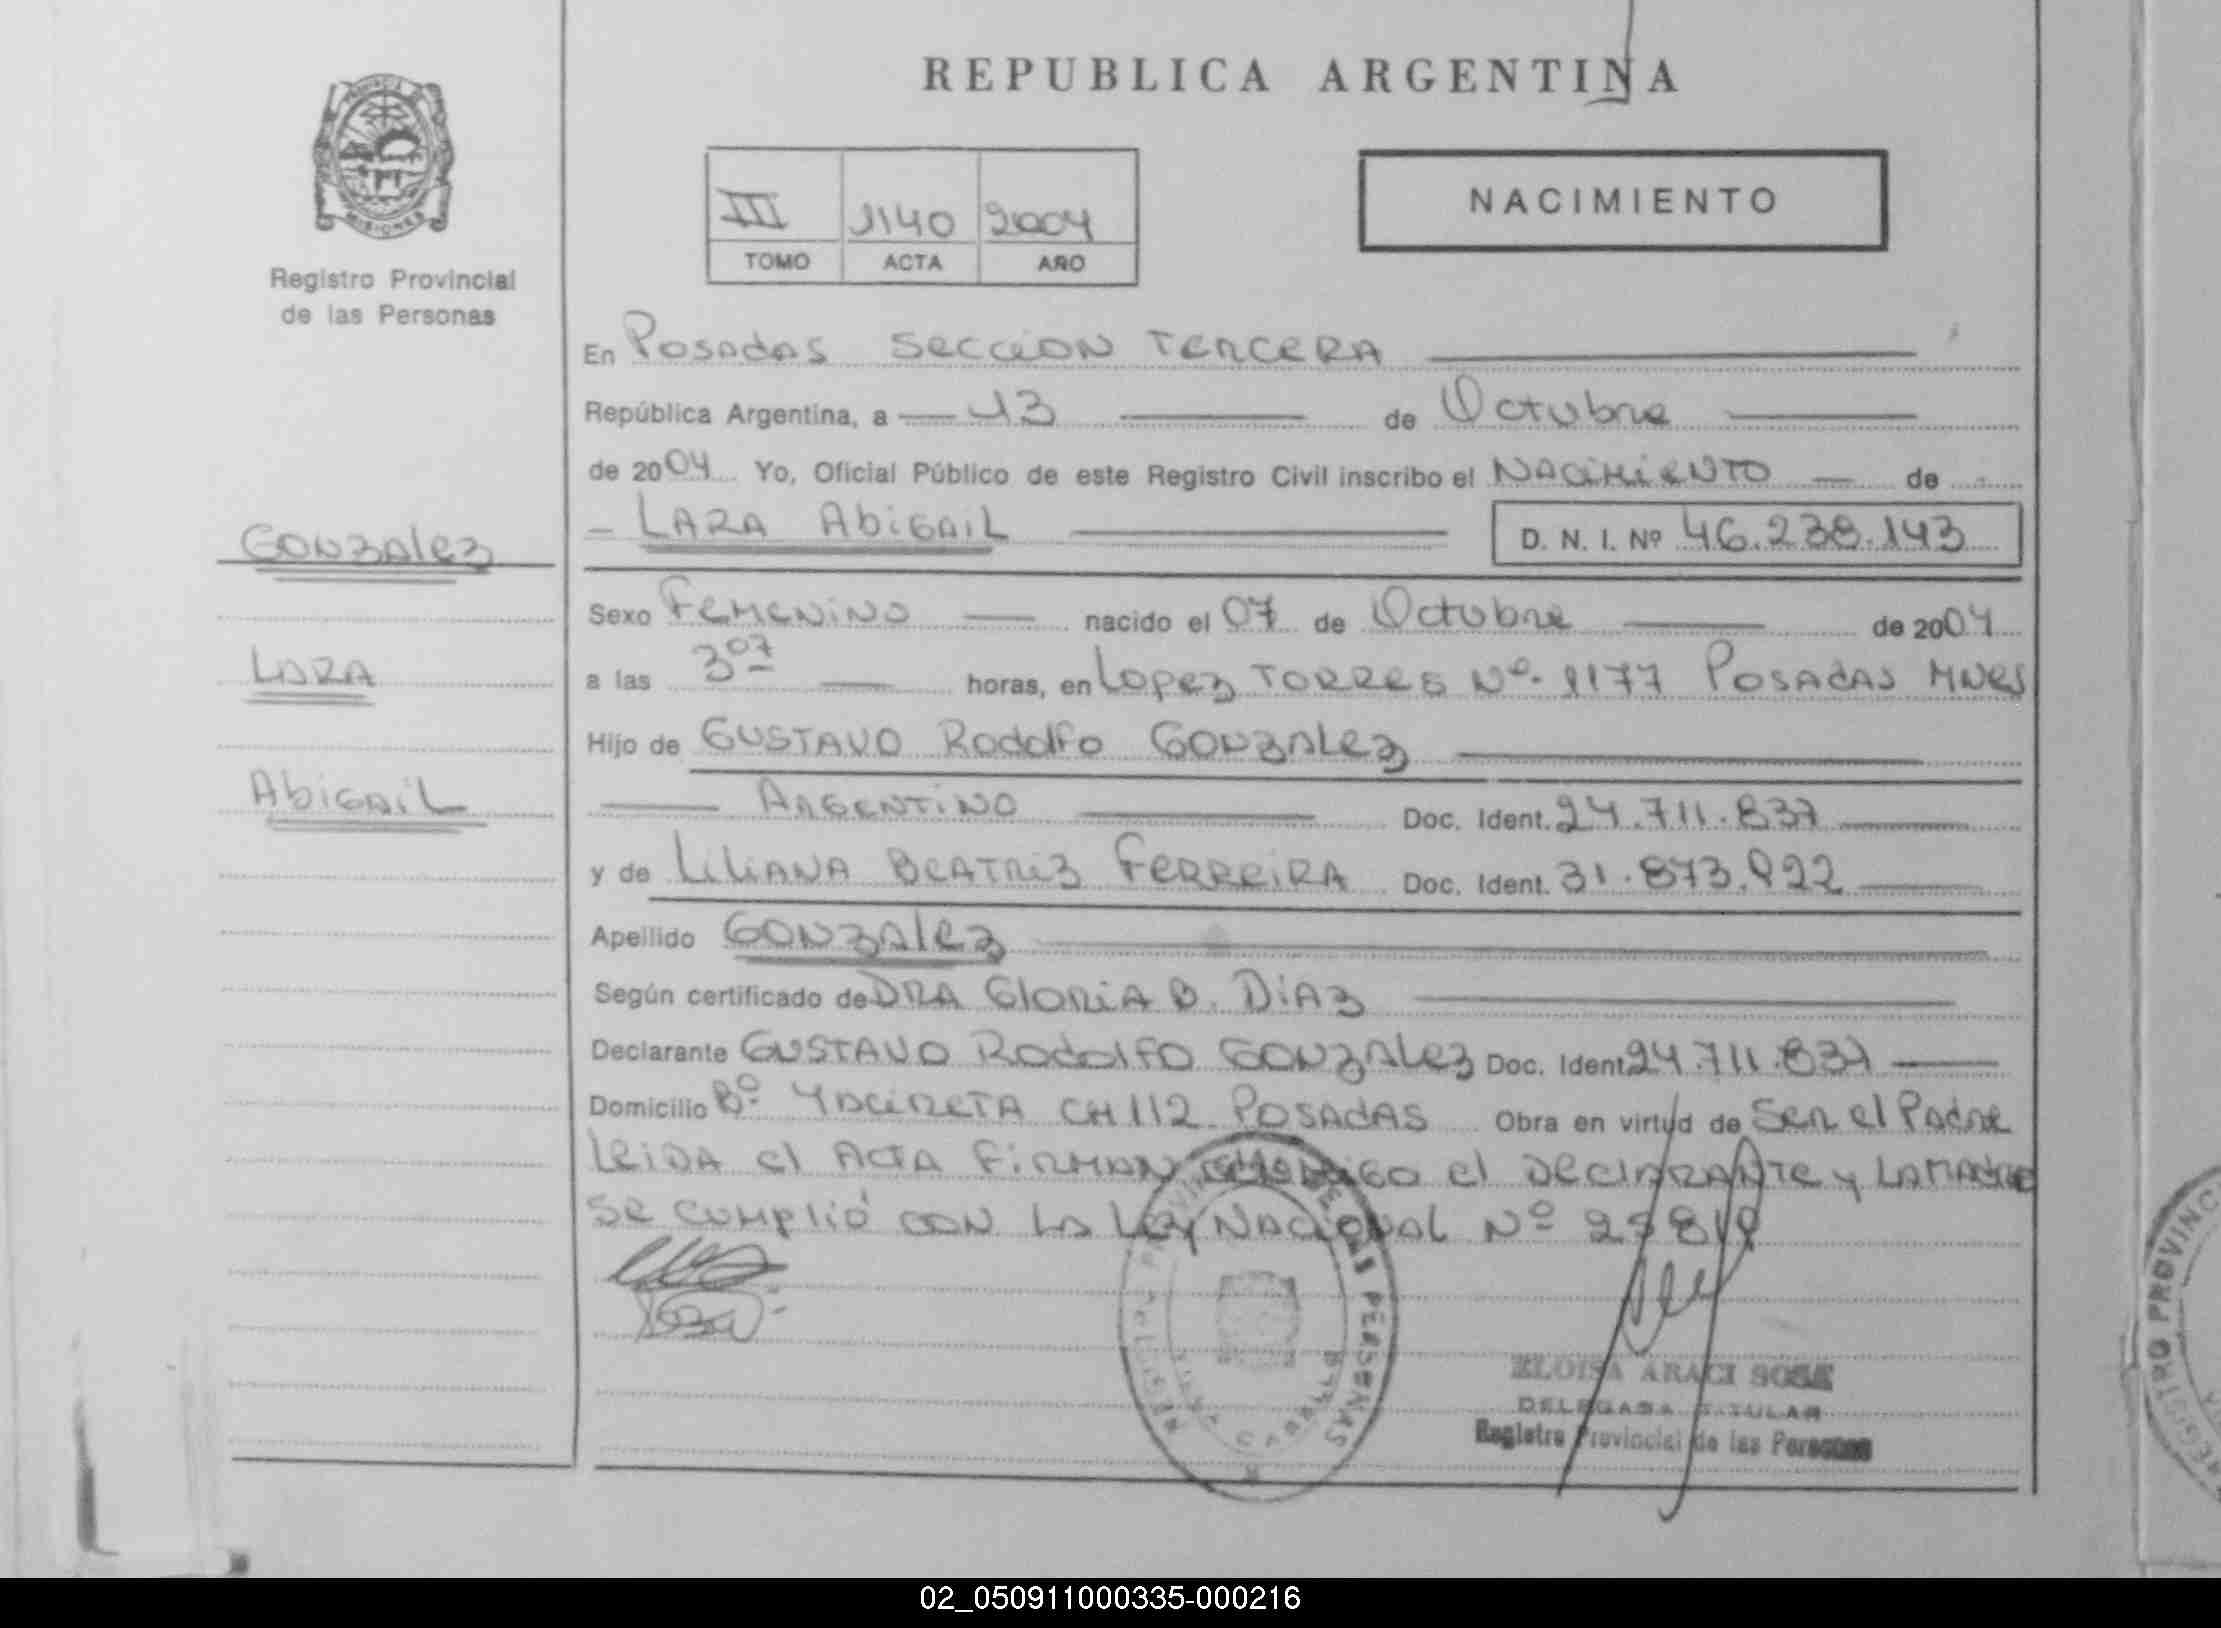 REPUBLICA ARGENTINA
PROVINCIA DE MISIONES
Registro Provincial
de las Personas
III 1140 2004
TOMO ACTA AÑO
NACIMIENTO
En Posadas Seccion Tercera
República Argentina, a 13 de Octubre
de 2004 Yo, Oficial Público de este Registro Civil inscribo el Nacimiento de
Lara Abigail D. N. I. Nº 46.238.143
Gonzalez
Lara
Abigail
Sexo Femenino nacido el 07 de Octubre de 2004
a las 3 07 horas, en Lopez Torres Nº 1177 Posadas Mnes
Hijo de Gustavo Rodolfo Gonzalez
Argentino Doc. Ident. 24.711.837
y de Liliana Beatriz Ferreira Doc. Ident. 31.873.922
Apellido Gonzalez
Según certificado de Dra Gloria B. Diaz
Declarante Gustavo Rodolfo Gonzalez Doc. Ident 24.711.837
Domicilio Bº Yacireta CH 112 Posadas Obra en virtud de Ser el Padre
Leida el Acta Firman conmigo el Declarante y La Madre
Se cumplió con la Ley Nacional Nº
ELOISA ARACI SOSA
DELEGADA TITULAR
Registro Provincial de las Personas
REGISTRO PROVINC
02_050911000335-000216